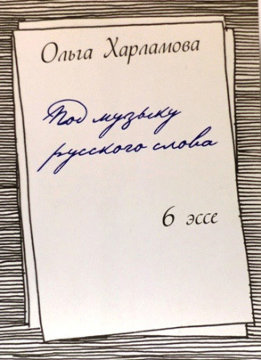 Ольга Харламова
Под музыку
русского слова
6 эссе